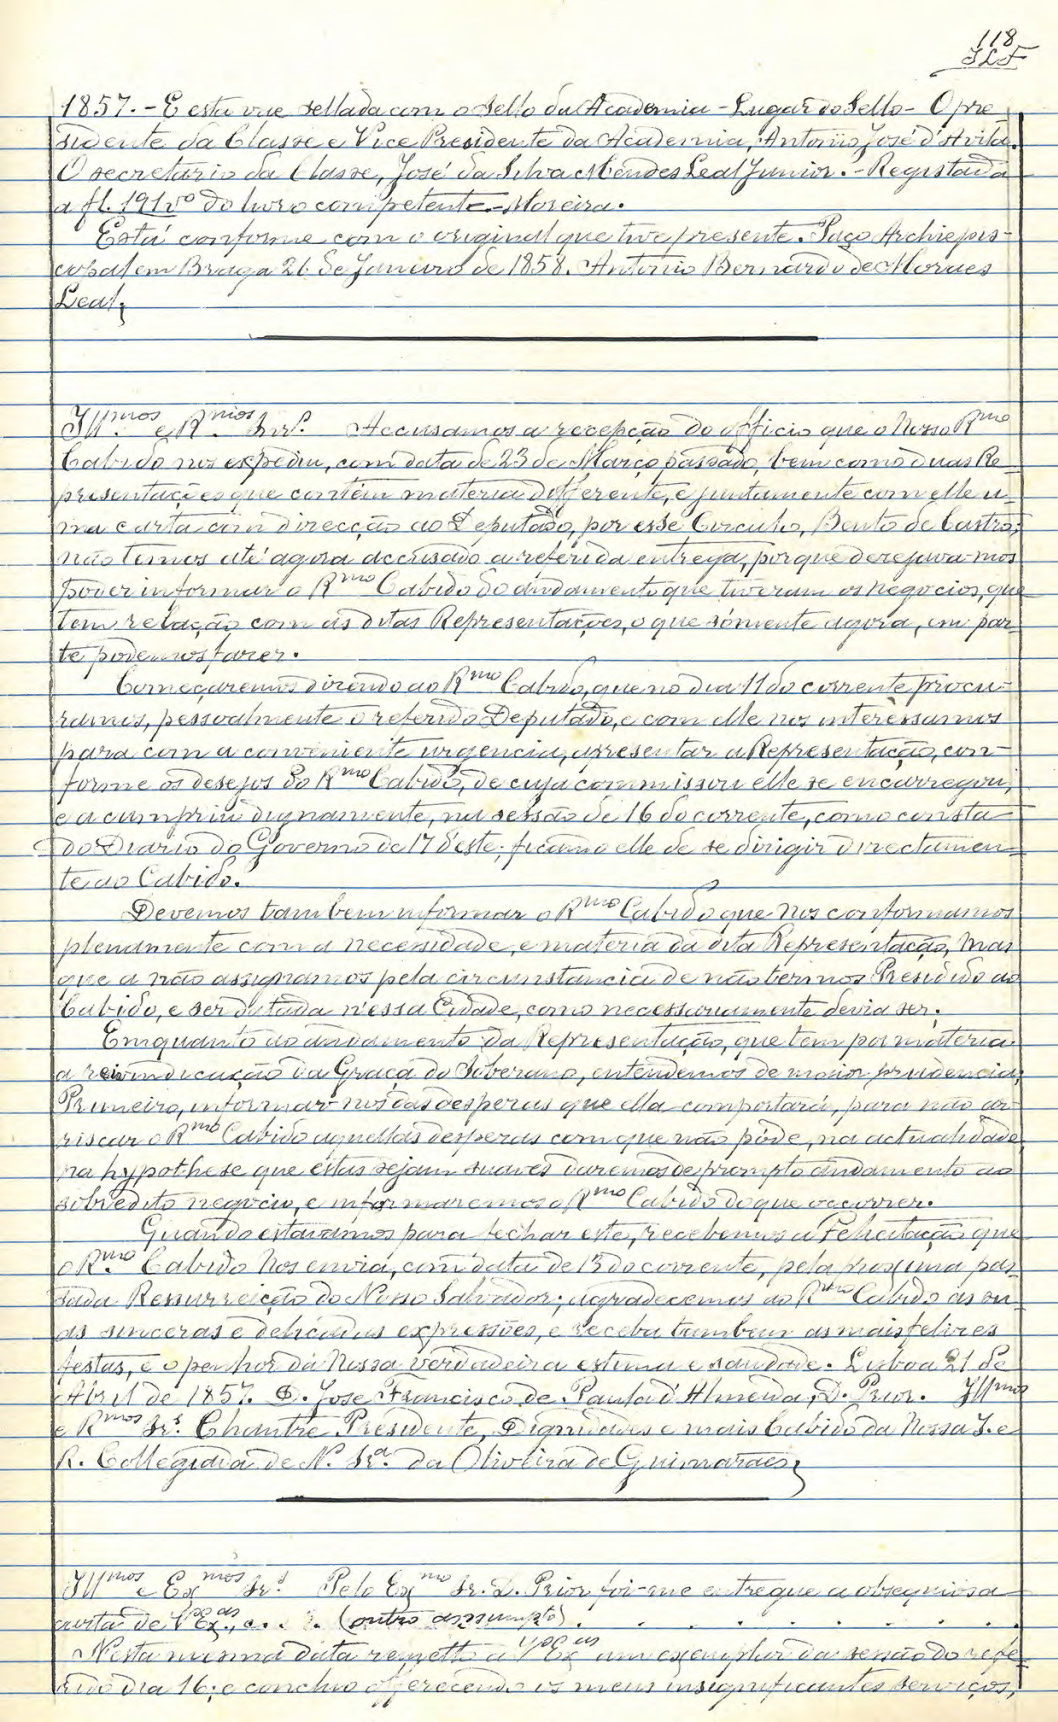 118
JLF
1857. - E esta vae sellada com o sello da Academia - Lugar do Sello - O pre-
sidente da Classe e Vice Presidente da Academia, Antonio José d'Avila.
O secretario da Classe, José da Silva Mendes Leal Junior. - Registada
a fl. 191vº do livro competente - Moreira.
Está conforme com o original que tive presente. Paço Archiepis-
copal em Braga 21 de Janeiro de 1858. Antonio Bernardo de Moraes
Leal,
Ill.mos e R.mos Snr.s Accusamos a recepção do officio que o Nosso Rmo
Cabido nos expediu, com data de 23 de Março passado, bem como duas Re-
presentações que contêm materia differente, e juntamente com elle u-
ma carta com direcção ao Deputado, por esse Circulo, Bento de Castro;
não temos até agora accusado a referida entrega, porque desejava-mos
poder informar o Rmo Cabido do andamento que tiveram os negocios, que
tem relação com as ditas Representações, o que sómente agora, em par-
te podemos fazer.
Começaremos dizendo ao Rmo Cabido, que no dia 11 do corrente procu-
ramos, pessoalmente o referido Deputado, e com elle nos interessamos
para com a conveniente urgencia, apresentar a Representação, con-
forme os desejos do Rmo Cabido, de cuja commissão elle se encarregou,
e a cumpriu dignamente, na sessão de 16 do corrente, como consta
do Diario do Governo de 17 d'este; ficando elle de se dirigir directamen-
te ao Cabido.
Devemos tambem informar o Rmo Cabido que nos conformamos
plenamente com a necessidade, e materia da dita Representação, mas
que a não assignamos pela circunstancia de não termos Presidido ao
Cabido, e ser datada n'essa Cidade, como necessariamente devia ser.
Emquanto ao andamento da Representação, que tem por materia
a reivindicação da Graça do Soberano, entendemos de maior prudencia,
Primeiro, informar-nos das despezas que ella comportará, para não ar-
riscar o Rmo Cabido aquellas despezas com que não póde, na actualidade,
na hypothese que estas sejam suaves daremos de prompto andamento ao
sobredito negocio, e informaremos o Rmo Cabido do que occorrer.
Quando estavamos para fechar este, recebemos a Felicitação que
o R.mo Cabido Nos envia, com data de 13 do corrente, pela proxima pas-
sada Ressurreição do Nosso Salvador; agradecemos ao Rmo Cabido as su-
as sinceras e delicadas expressões, e receba tambem as mais felizes
festas, e o penhor da Nossa verdadeira estima e saudade. Lisboa 21 de
Abril de 1857. D. José Francisco de Paula d'Almeida, D. Prior. Illmos
e Rmos Sr.s Chantre Presidente, Dignidades e mais Cabido da Nossa I. e
R. Collegiada de N. Sr.a da Oliveira de Guimarães,
Ill.mos e Exmos Sr.s Pelo Exmo Sr. D. Prior foi-me entregue a obsequiosa
carta de V.as Ex.as, e . . . (outro assumpto) . . . . . . . .
Nesta mesma data remetto a V.as Ex.as um exemplar da sessão do refe-
rido dia 16; e concluo offerecendo os meus insignificantes serviços,